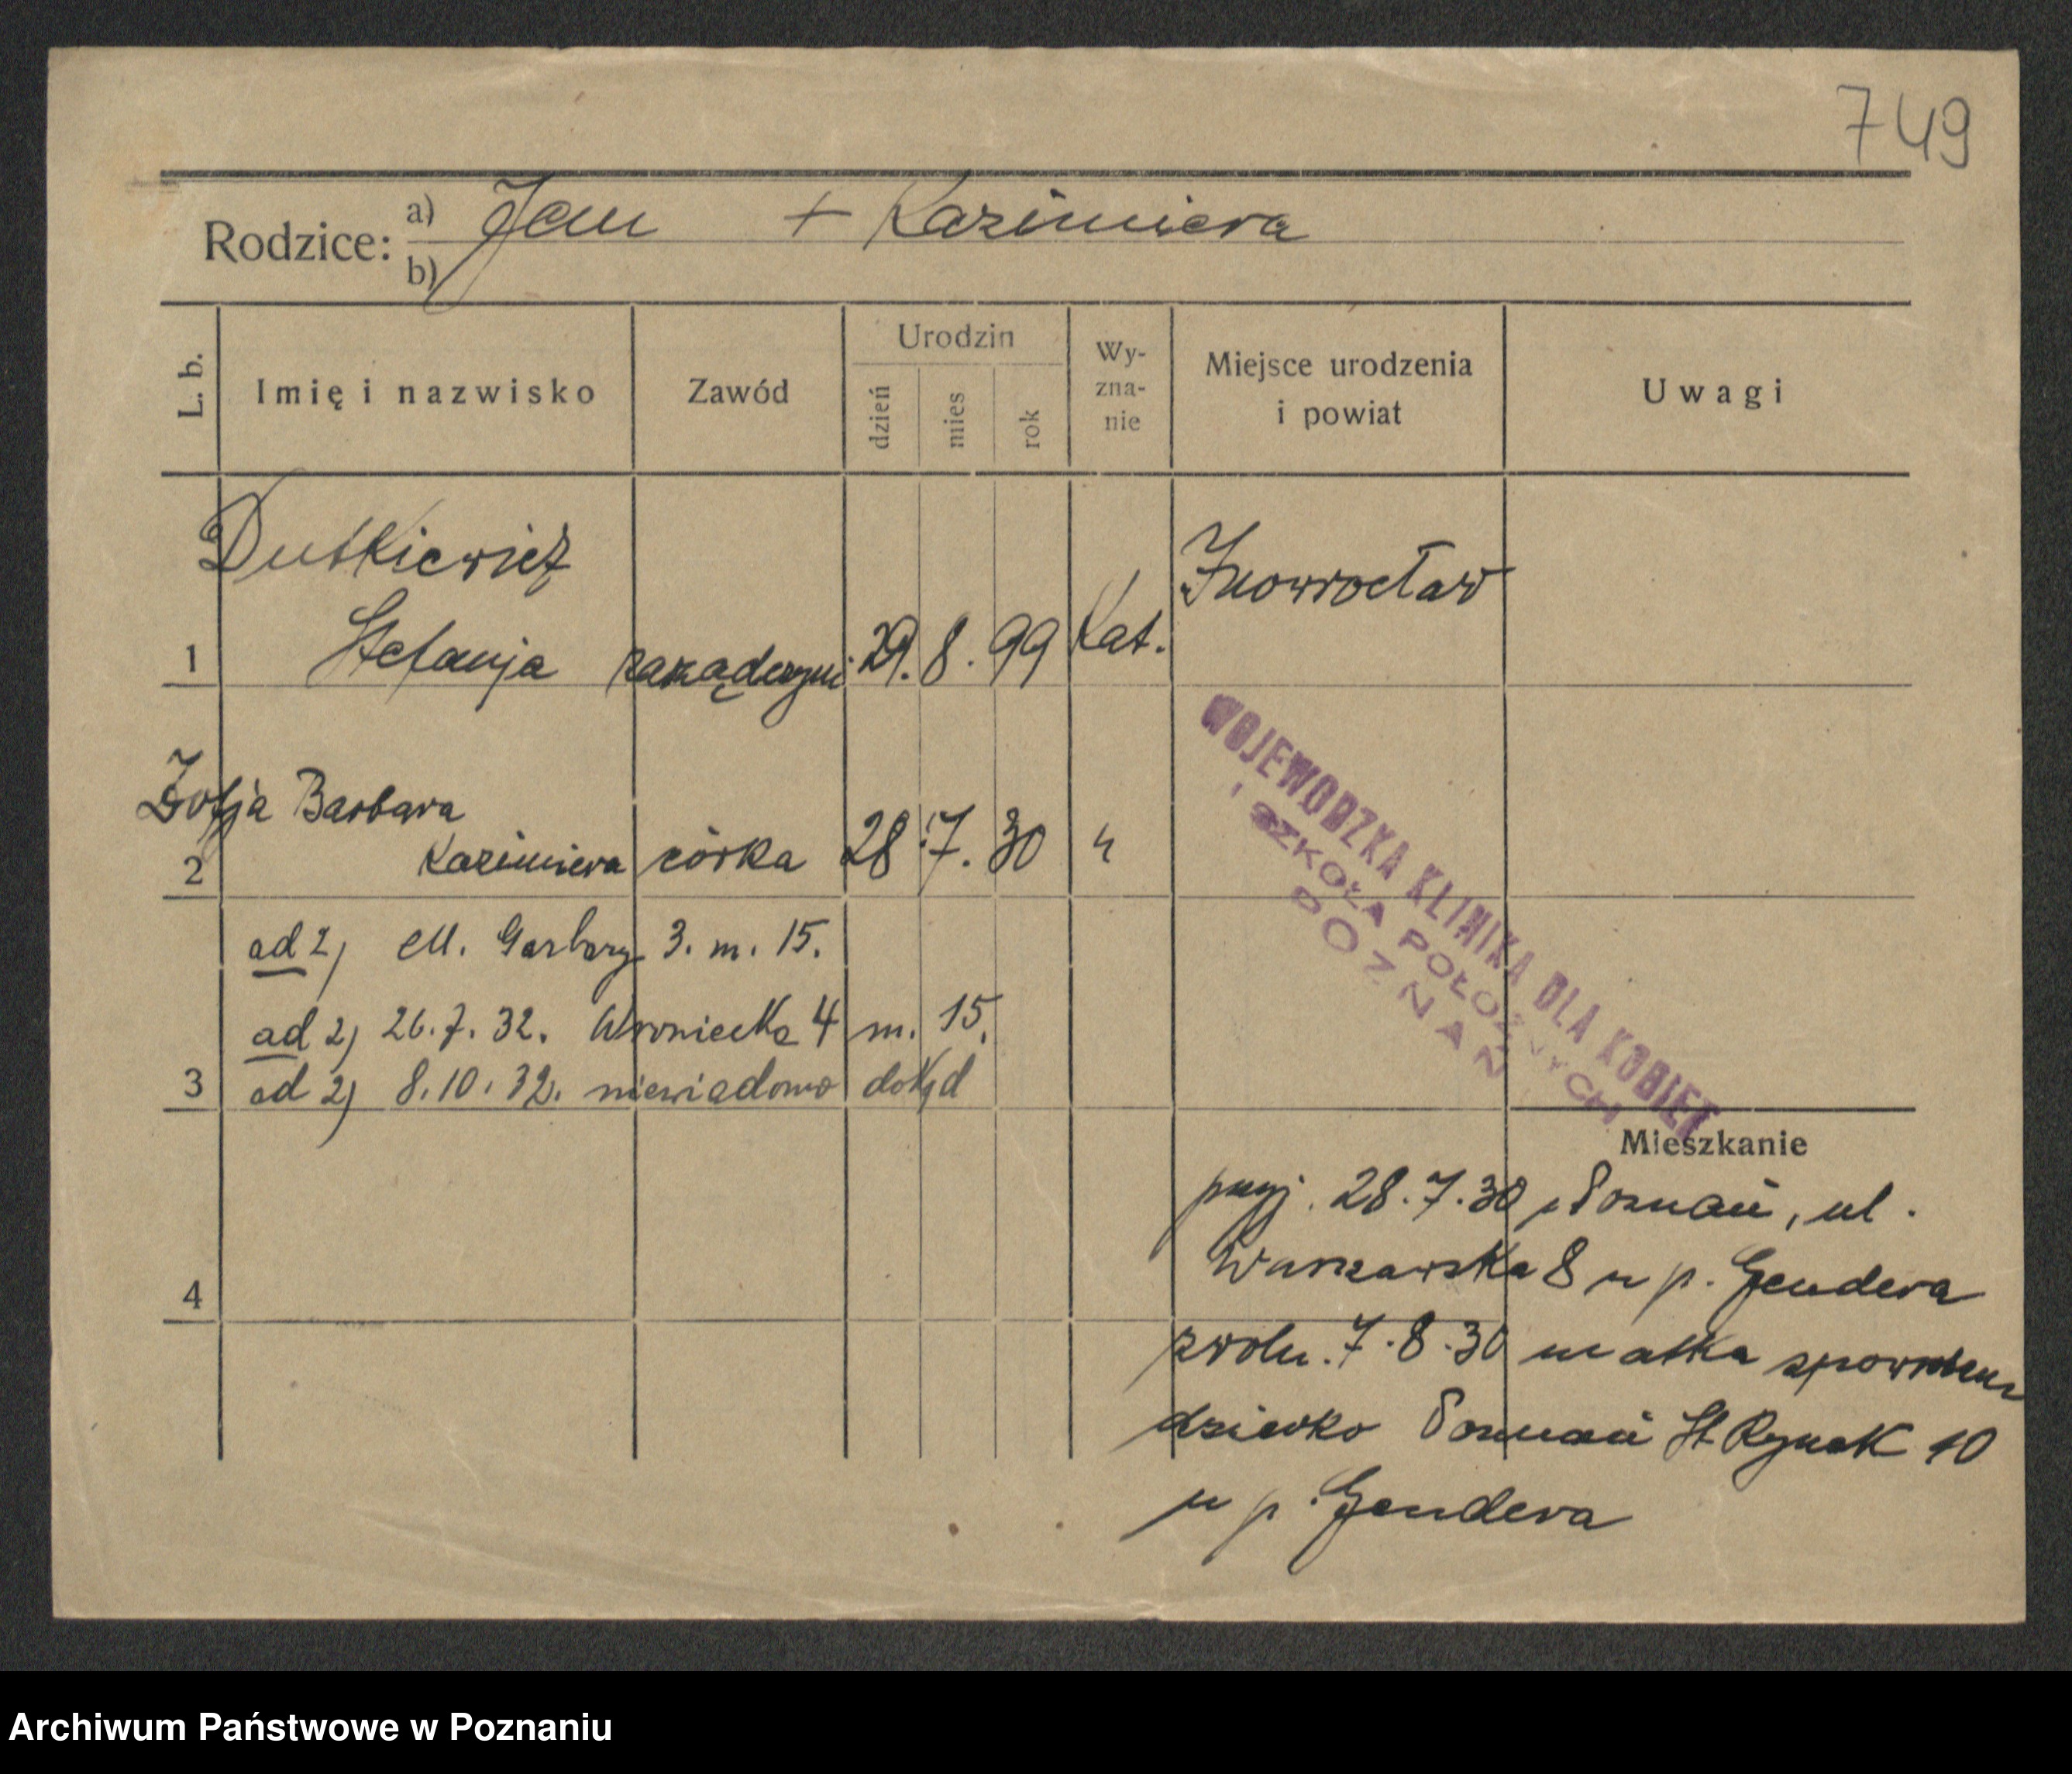 749
Rodzice: a) Jan + Kazimiera
b)
L. b. Imię i nazwisko Zawód Urodzin dzień mies rok Wy-zna-nie Miejsce urodzenia i powiat Uwagi
Dutkiewicz Inowrocław
1 Stefanja zarządczyni 29. 8. 99 Kat.
Zofja Barbara
2 Kazimiera córka 28 7. 30 "
ad 2) M. Garbary 3. m. 15.
ad 2) 26.7.32. Wroniecka 4 m. 15.
3 ad 2) 8.10.32. niewiadomo dokąd
4
WOJEWODZKA KLINIKA DLA KOBIET
I SZKOŁA POŁOŻNYCH
POZNAŃ
Mieszkanie
przyj. 28.7.30 Poznań, ul.
Warszawska 8 u p. Gendera
zwoln. 7.8.30 matka
dziecko Poznań St Rynek 10
u p. Gendera
Archiwum Państwowe w Poznaniu